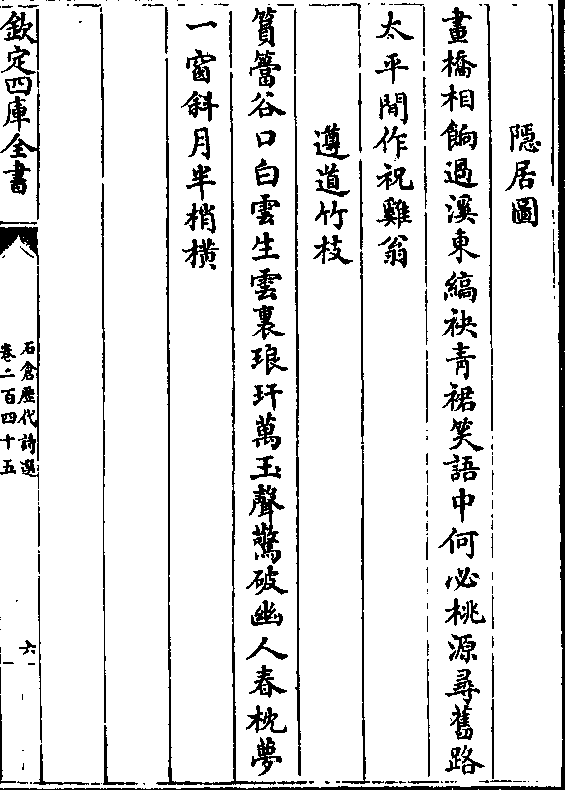 隱居圖
畫橋相餉過溪東縞袂青裙笑語中何必桃源尋舊路
太平閒作祝雞翁
遵道竹枝
篔簹谷口白雲生雲裏琅玕萬玉聲驚破幽人春枕夢
一窗斜月半梢横
欽定四庫全書
石倉歷代詩選
卷二百四十五
六